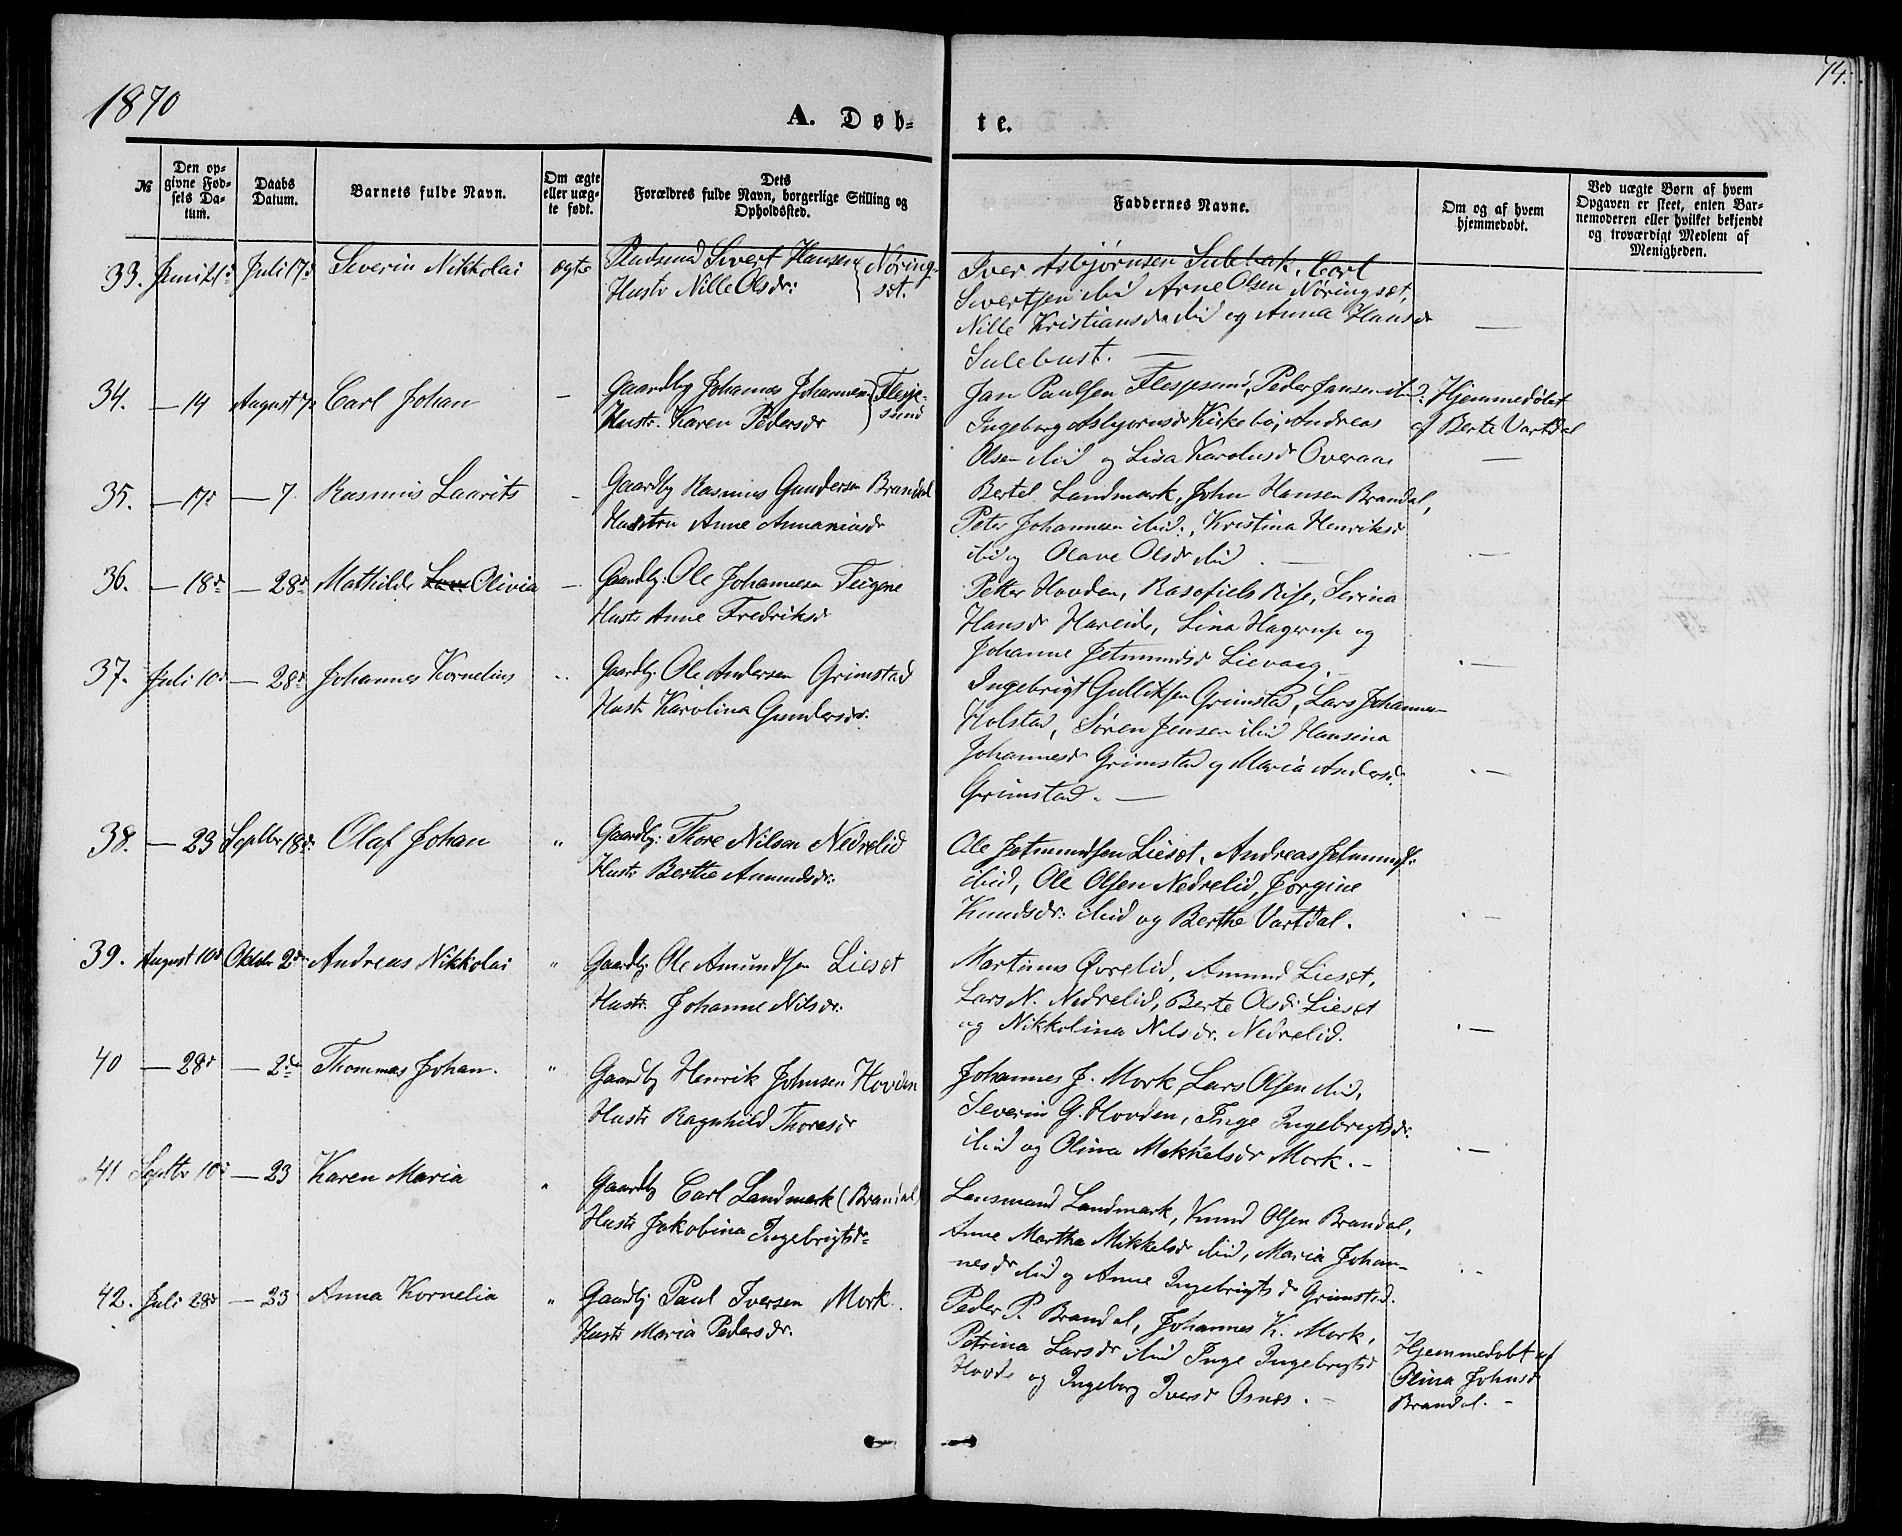 1870
74.
A. Døb-
te.
№
Den op-
givne Fød-
sels Da-
tum.
Daabs
Datum.
Barnets fulde Navn.
Om ægte
eller uæg-
te født.
Dets
Forældres fulde Navn, borgerlige Stilling og
Opholdssted.
Faddernes Navne.
Om og af hvem
hjemmedøbt.
Ved uægte Børn af hvem
Opgaven er skeet, enten Bar-
nemoderen eller hvilket bekjendt
og troværdigt Medlem af
Menigheden.
33. Juni Juli 17d Severin Nikkolai ægte Pladsmd Sivert Hansen Nøring-
Hustr Nille Olsdr: sæt.
Iver Asbjørnsen Sulebak, Carl
Sivertsen ibid Arne Olsen Nøringsæt,
Nille Kristiansdr ibid og Anna Hansdr —
Sulebust. —
34. — 14 August 7d Carl Johan — Gaardbg Johannes Johannesen Flesje-
Hustr. Karen Pedersdr sund
Jan Paulsen Flesjesund, Peder Jansen ibid. Hjemmedøbt
Ingeborg Asbjørnsdr Kirkebø, Andreas af Berte Vartdal
Olsen ibid og Lisa Karolusdr Overaae —
35. — 17d — 7 Rasmus Laurits — Gaardbg Rasmus Gundersen Brandal
Hustru Anne Annaniasdr
Bertel Landmark, John Hansen Brandal,
Peter Johannesen ibid:, Kristina Henriksdr
ibid og Olave Olsdr ibid —
36. — 18d — 28d Mathilde Olivia — Gaardbg: Ole Johannesen Teigene
Hustr Anne Fredriksdr
Petter Hovden, Rasofiels Rise, Serina
Hansdr Hareide, Lina Hagerup og
Johanne Jetmundsdr Lievaag. —
37. Juli 10d — 28d Johannes Kornelius " Gaardbg: Ole Andersen Grimstad
Hustr Karolina Gundersdr:
Ingebrigt Gulliksen Grimstad, Lars Johannes-
Holstad, Søren Jensen ibid Hansina
Johannesdr Grimstad og Maria Andersdr: —
Grimstad. —
38. — 23 Septbr 18d: Olaf Johan " Gaardbg: Thore Nilsen Nedrelid
Hustr Berthe Amundsdr:
Ole Jetmundsen Lieset, Andreas Jetmunds:
ibid, Ole Olsen Nedrelid, Jørgine
Knudsdr: ibid og Berthe Vartdal. —
39. August 10d Oktbr 2d Andreas Nikkolai " Gaardbg: Ole Amundsen Lieset
Hustr. Johanne Nilsdr:
Martinus Øvrelid, Amund Lieset,
Lars N. Nedrelid, Berte Olsdr: Lieset
og Nikkolina Nilsdr. Nedrelid. —
40 — 28d — 2d Thommas Johan. " Gaardbg Henrik Johnsen Hovden
Hustr Ragnhild Thoresdr
Johannes J. Mork, Lars Olsen ibid,
Severin G. Hovden, Inge Ingebrigtsdr:
ibid og Olina Mikkelsdr Mork. — —
41 Septbr 10d — 23 Karen Maria " Gaardbg Carl Landmark (Brandal)
Hustr Jakobina Ingebrigtsdr
Lensmand Landmark, Knud Olsen Brandal,
Anne Martha Mikkelsdr ibid, Maria Johan-
nesdr ibid og Anne Ingebrigtsdr Grimstad. —
42. Juli 28d — 23 Anna Kornelia " Gaardbg Paul Iversen Mork.
Hustr Maria Pedersdr.
Peder P. Brandal, Johannes K. Mork,
Petrina Larsdr ibid Inge Ingebrigtsdr Hjemmedøbt af
Hovde og Ingeborg Iversdr Osnes. — Olina Johnsdr
Brandal. —